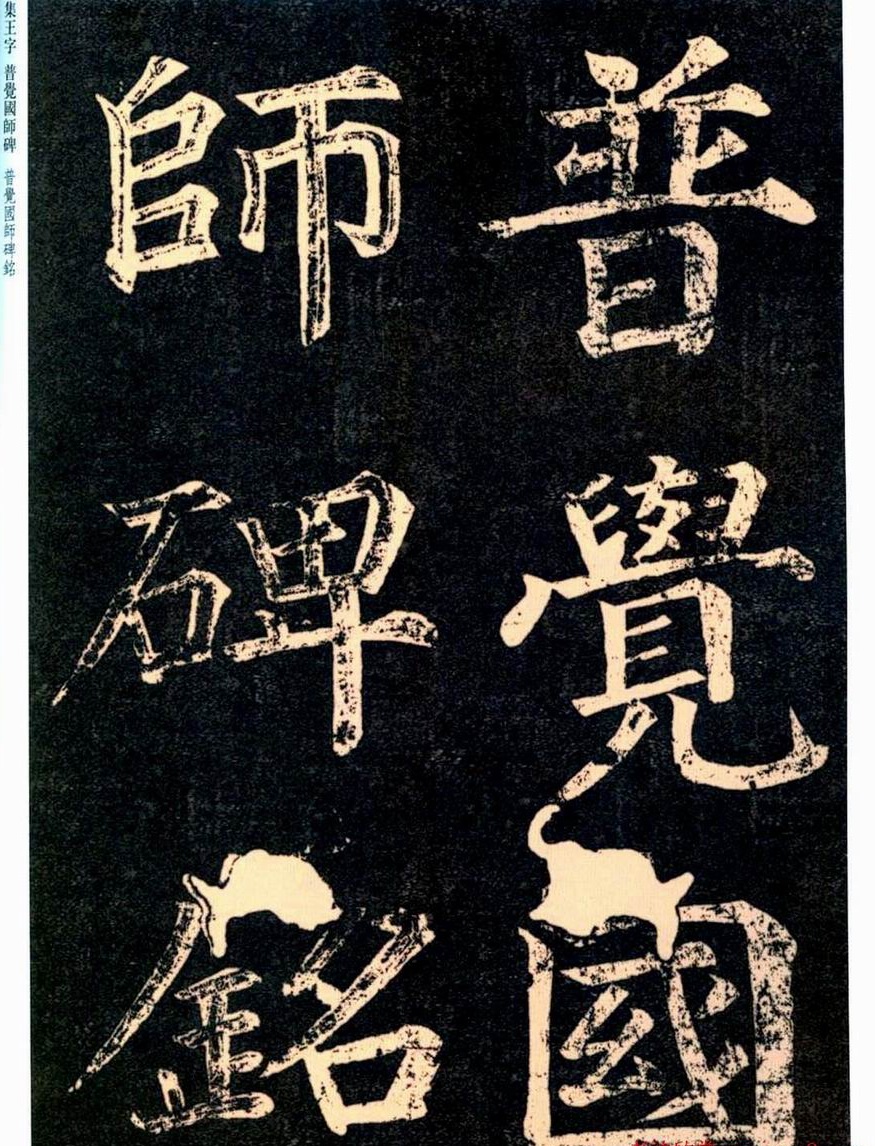 普覺國
師碑銘
集王字 普覺國師碑 普覺國師碑銘